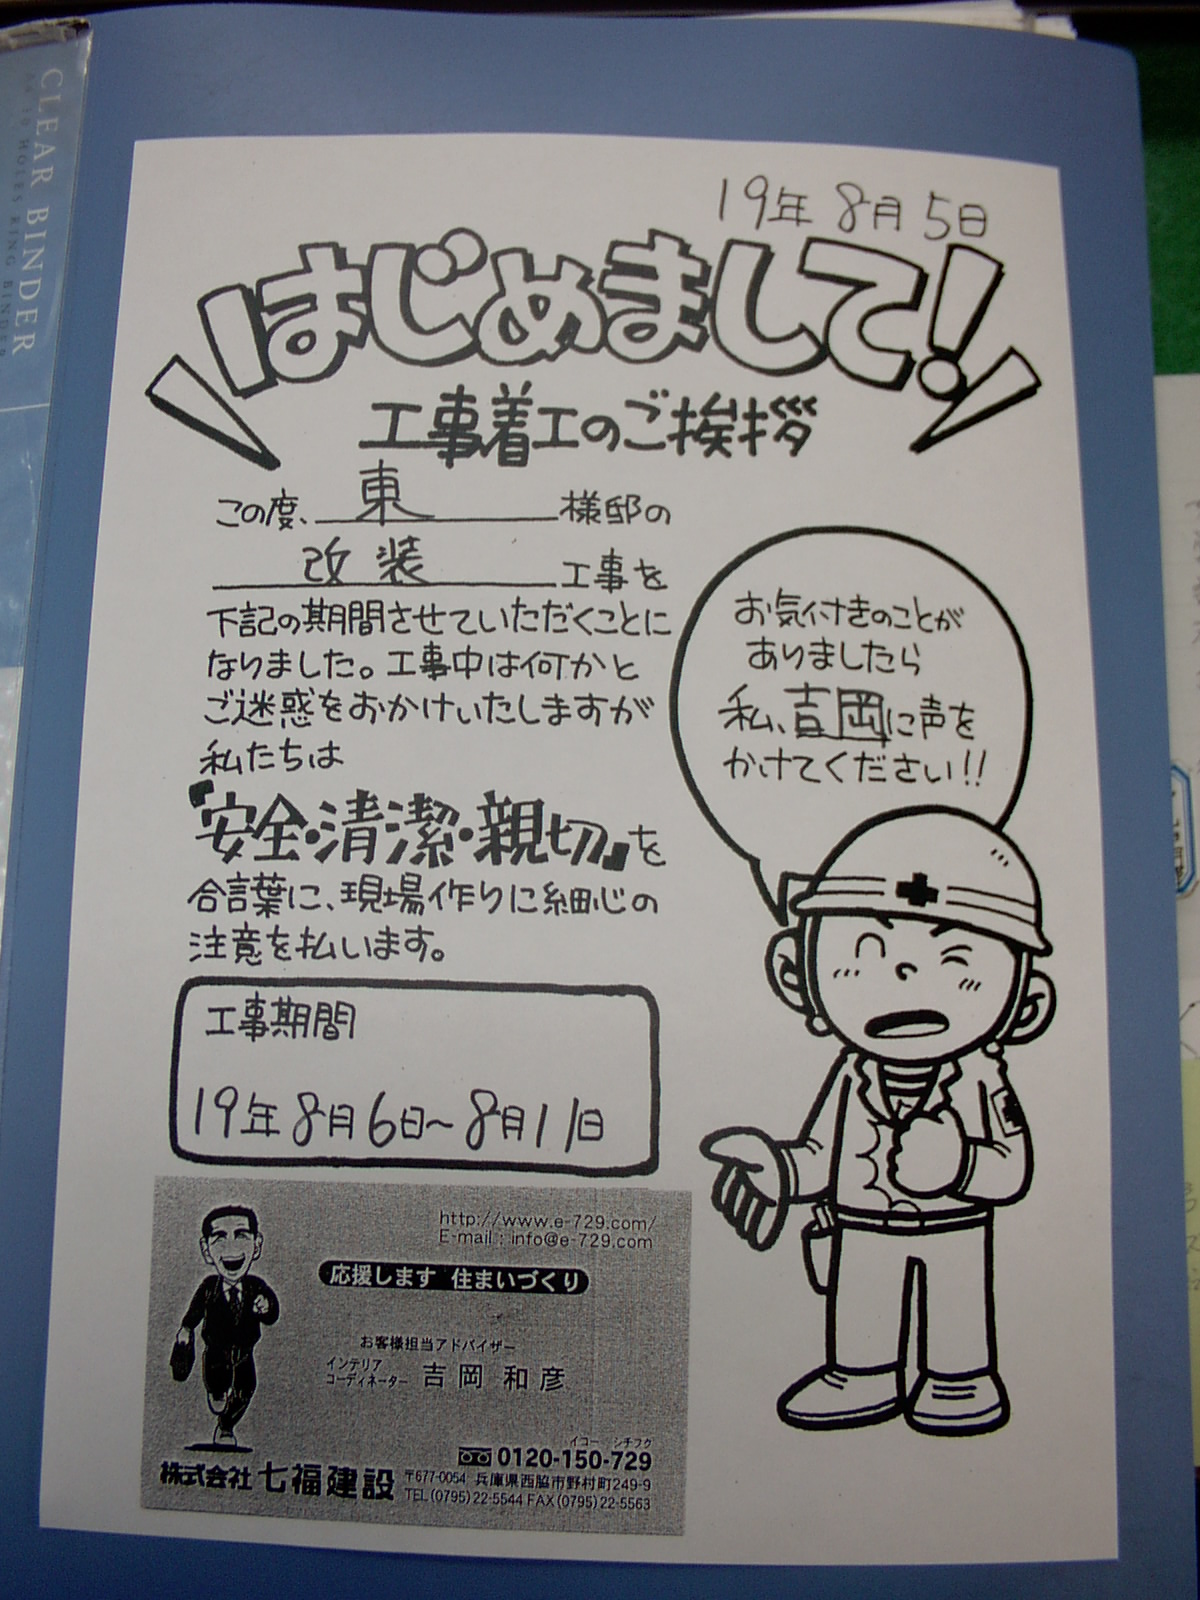 CLEAR BINDER
19年 8月 5日
はじめまして!
工事着工のご挨拶
この度、東様邸の
改装工事を
下記の期間させていただくことに
なりました。工事中は何かと
ご迷惑をおかけいたしますが
私たちは
『安全・清潔・親切』を
合言葉に、現場作りに細心の
注意を払います。
お気付きのことが
ありましたら
私、吉岡に声を
かけてください!!
工事期間
19年 8月 6日~8月11日
http://www.e-729.com/
E-mail : info@e-729.com
応援します 住まいづくり
お客様担当アドバイザー
インテリア
コーディネーター 吉岡 和彦
イコー シチフク
0120-150-729
株式会社 七福建設
〒677-0054 兵庫県西脇市野村町249-9
TEL(0795)22-5544 FAX(0795)22-5563